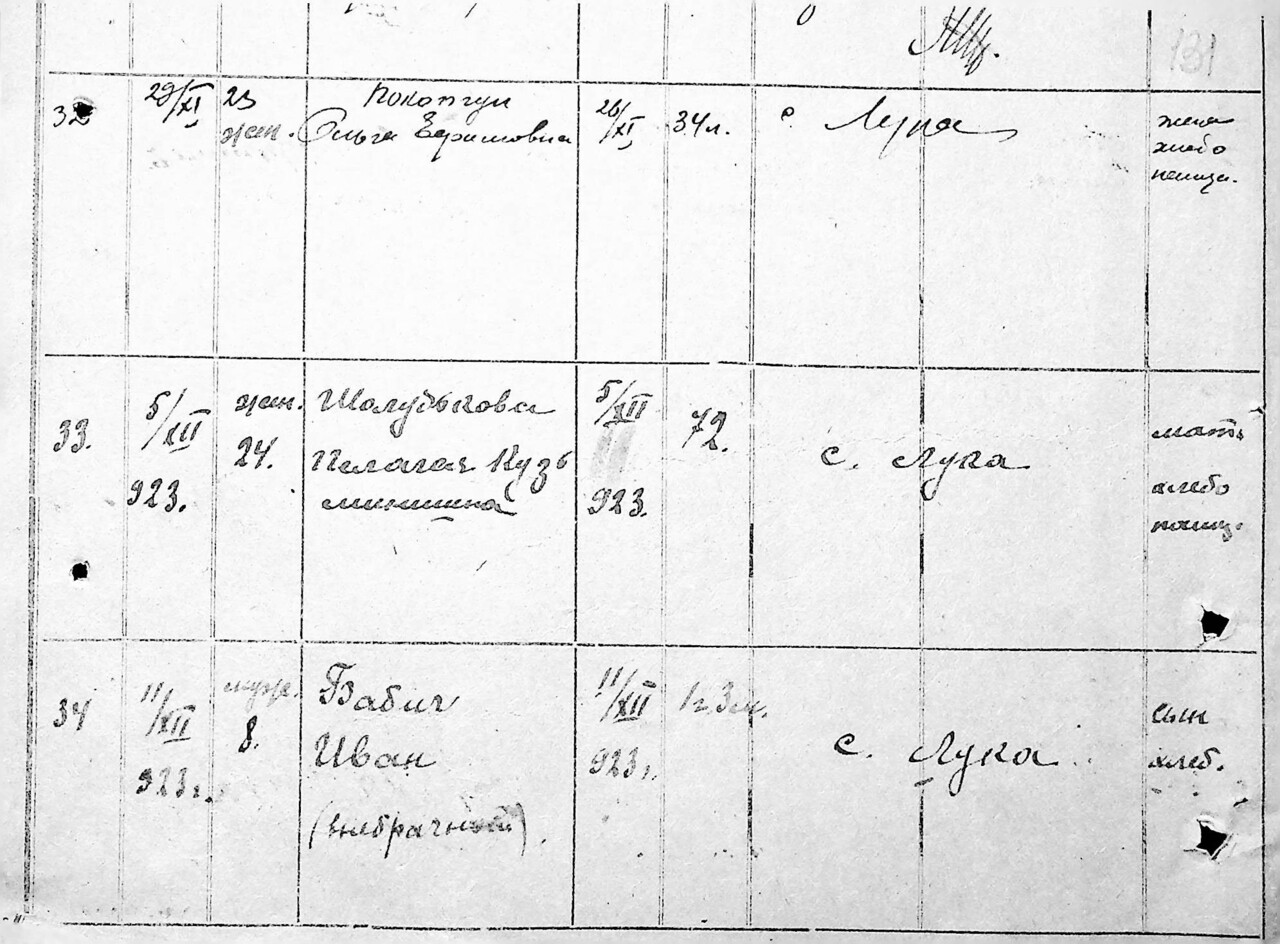 131
32
29/XI
23
жен.
Ольга Ефимовна
26/XI
34 л.
с. Лука
жена
хлебо
пашца.
33.
5/XII
923.
жен.
24.
Шолудькова
Пелагея Кузь
минишна
5/XII
923.
72.
с. Лука
мать
хлебо
пашц.
34
11/XII
923 г.
муж.
8.
Бабич
Иван
(внебрачный).
11/XII
923 г.
1 г. 3 м.
с. Лука
сын
хлеб.